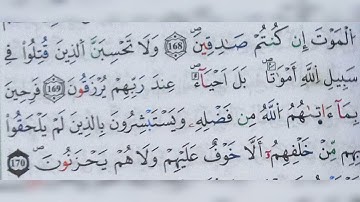 الْمَوْتَ إِن كُنتُمْ صَـٰدِقِينَ ۝١٦٨ وَلَا تَحْسَبَنَّ الَّذِينَ قُتِلُوا۟ فِى
سَبِيلِ اللَّهِ أَمْوَٰتَۢا بَلْ أَحْيَآءٌ عِندَ رَبِّهِمْ يُرْزَقُونَ ۝١٦٩ فَرِحِينَ
بِمَآ ءَاتَىٰهُمُ اللَّهُ مِن فَضْلِهِۦ وَيَسْتَبْشِرُونَ بِالَّذِينَ لَمْ يَلْحَقُوا۟
بِهِم مِّنْ خَلْفِهِمْ أَلَّا خَوْفٌ عَلَيْهِمْ وَلَا هُمْ يَحْزَنُونَ ۝١٧٠